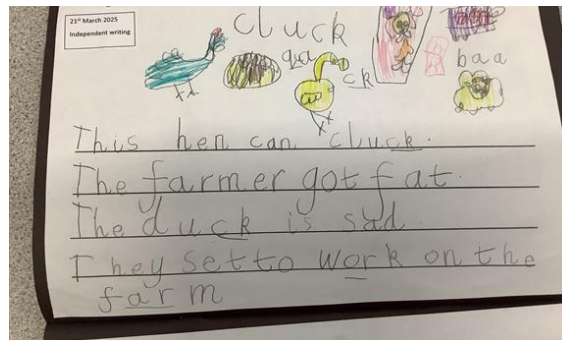 21st March 2025
Independent writing
cluck
quack
baa
This hen can cluck.
The farmer got fat.
The duck is sad
They set to work on the
farm